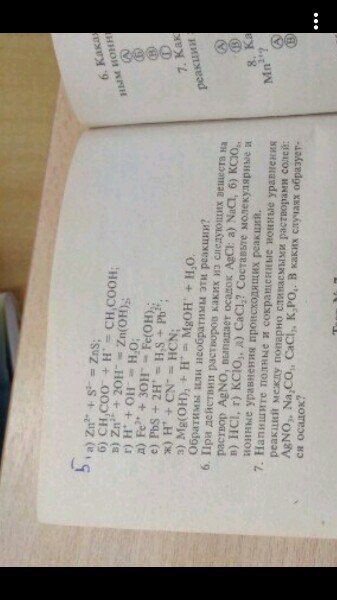 5
а) Zn²⁺ + S²⁻ = ZnS;
б) CH₃COO⁻ + H⁺ = CH₃COOH;
в) Zn²⁺ + 2OH⁻ = Zn(OH)₂;
г) H⁺ + OH⁻ = H₂O;
д) Fe³⁺ + 3OH⁻ = Fe(OH)₃;
е) PbS + 2H⁺ = H₂S + Pb²⁺;
ж) H⁺ + CN⁻ = HCN;
з) Mg(OH)₂ + H⁺ = MgOH⁺ + H₂O.
Обратимы или необратимы эти реакции?
6. При действии растворов каких из следующих веществ на
раствор AgNO₃ выпадает осадок AgCl: а) NaCl, б) KClO₃,
в) HCl, г) KClO₄, д) CaCl₂? Составьте молекулярные и
ионные уравнения происходящих реакций.
7. Напишите полные и сокращенные ионные уравнения
реакций между попарно сливаемыми растворами солей:
AgNO₃, Na₂CO₃, CaCl₂, K₃PO₄. В каких случаях образует-
ся осадок?
6. Кака
ным ионн
А
Б
В
Г
7. Как
реакции
А
В
8. Ка
Mn²⁺?
А
В